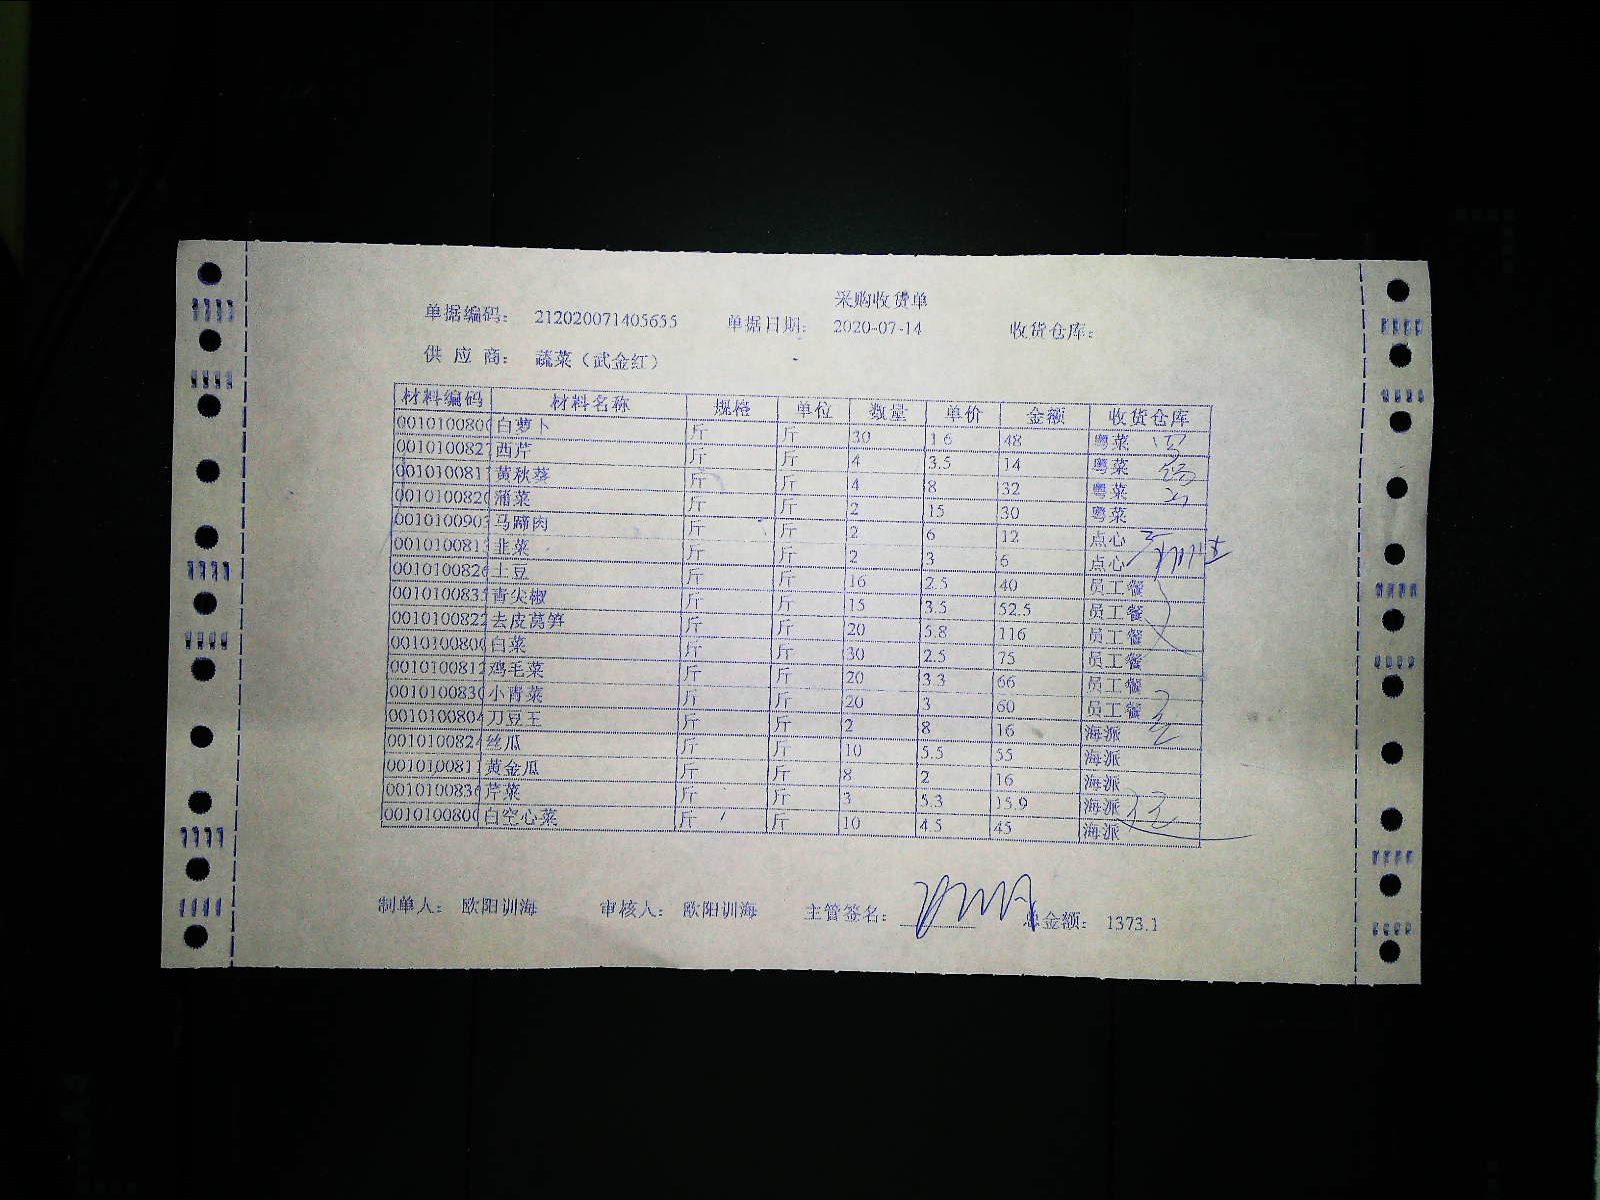 采购收货单
单据编码： 212020071405655 单据日期： 2020-07-14 收货仓库：
供 应 商： 蔬菜（武金红）
材料编码 材料名称 规格 单位 数量 单价 金额 收货仓库
0010100800 白萝卜 斤 斤 30 1.6 48 粤菜
0010100827 西芹 斤 斤 4 3.5 14 粤菜
0010100817 黄秋葵 斤 斤 4 8 32 粤菜
0010100820 蒲菜 斤 斤 2 15 30 粤菜
0010100903 马蹄肉 斤 斤 2 6 12 点心
0010100813 韭菜 斤 斤 2 3 6 点心
0010100826 土豆 斤 斤 16 2.5 40 员工餐
0010100835 青尖椒 斤 斤 15 3.5 52.5 员工餐
0010100822 去皮莴笋 斤 斤 20 5.8 116 员工餐
0010100800 白菜 斤 斤 30 2.5 75 员工餐
0010100812 鸡毛菜 斤 斤 20 3.3 66 员工餐
0010100830 小青菜 斤 斤 20 3 60 员工餐
0010100804 刀豆王 斤 斤 2 8 16 海派
0010100824 丝瓜 斤 斤 10 5.5 55 海派
0010100811 黄金瓜 斤 斤 8 2 16 海派
0010100836 芹菜 斤 斤 3 5.3 15.9 海派
0010100800 白空心菜 斤 斤 10 4.5 45 海派
制单人： 欧阳训海 审核人： 欧阳训海 主管签名： 总金额： 1373.1